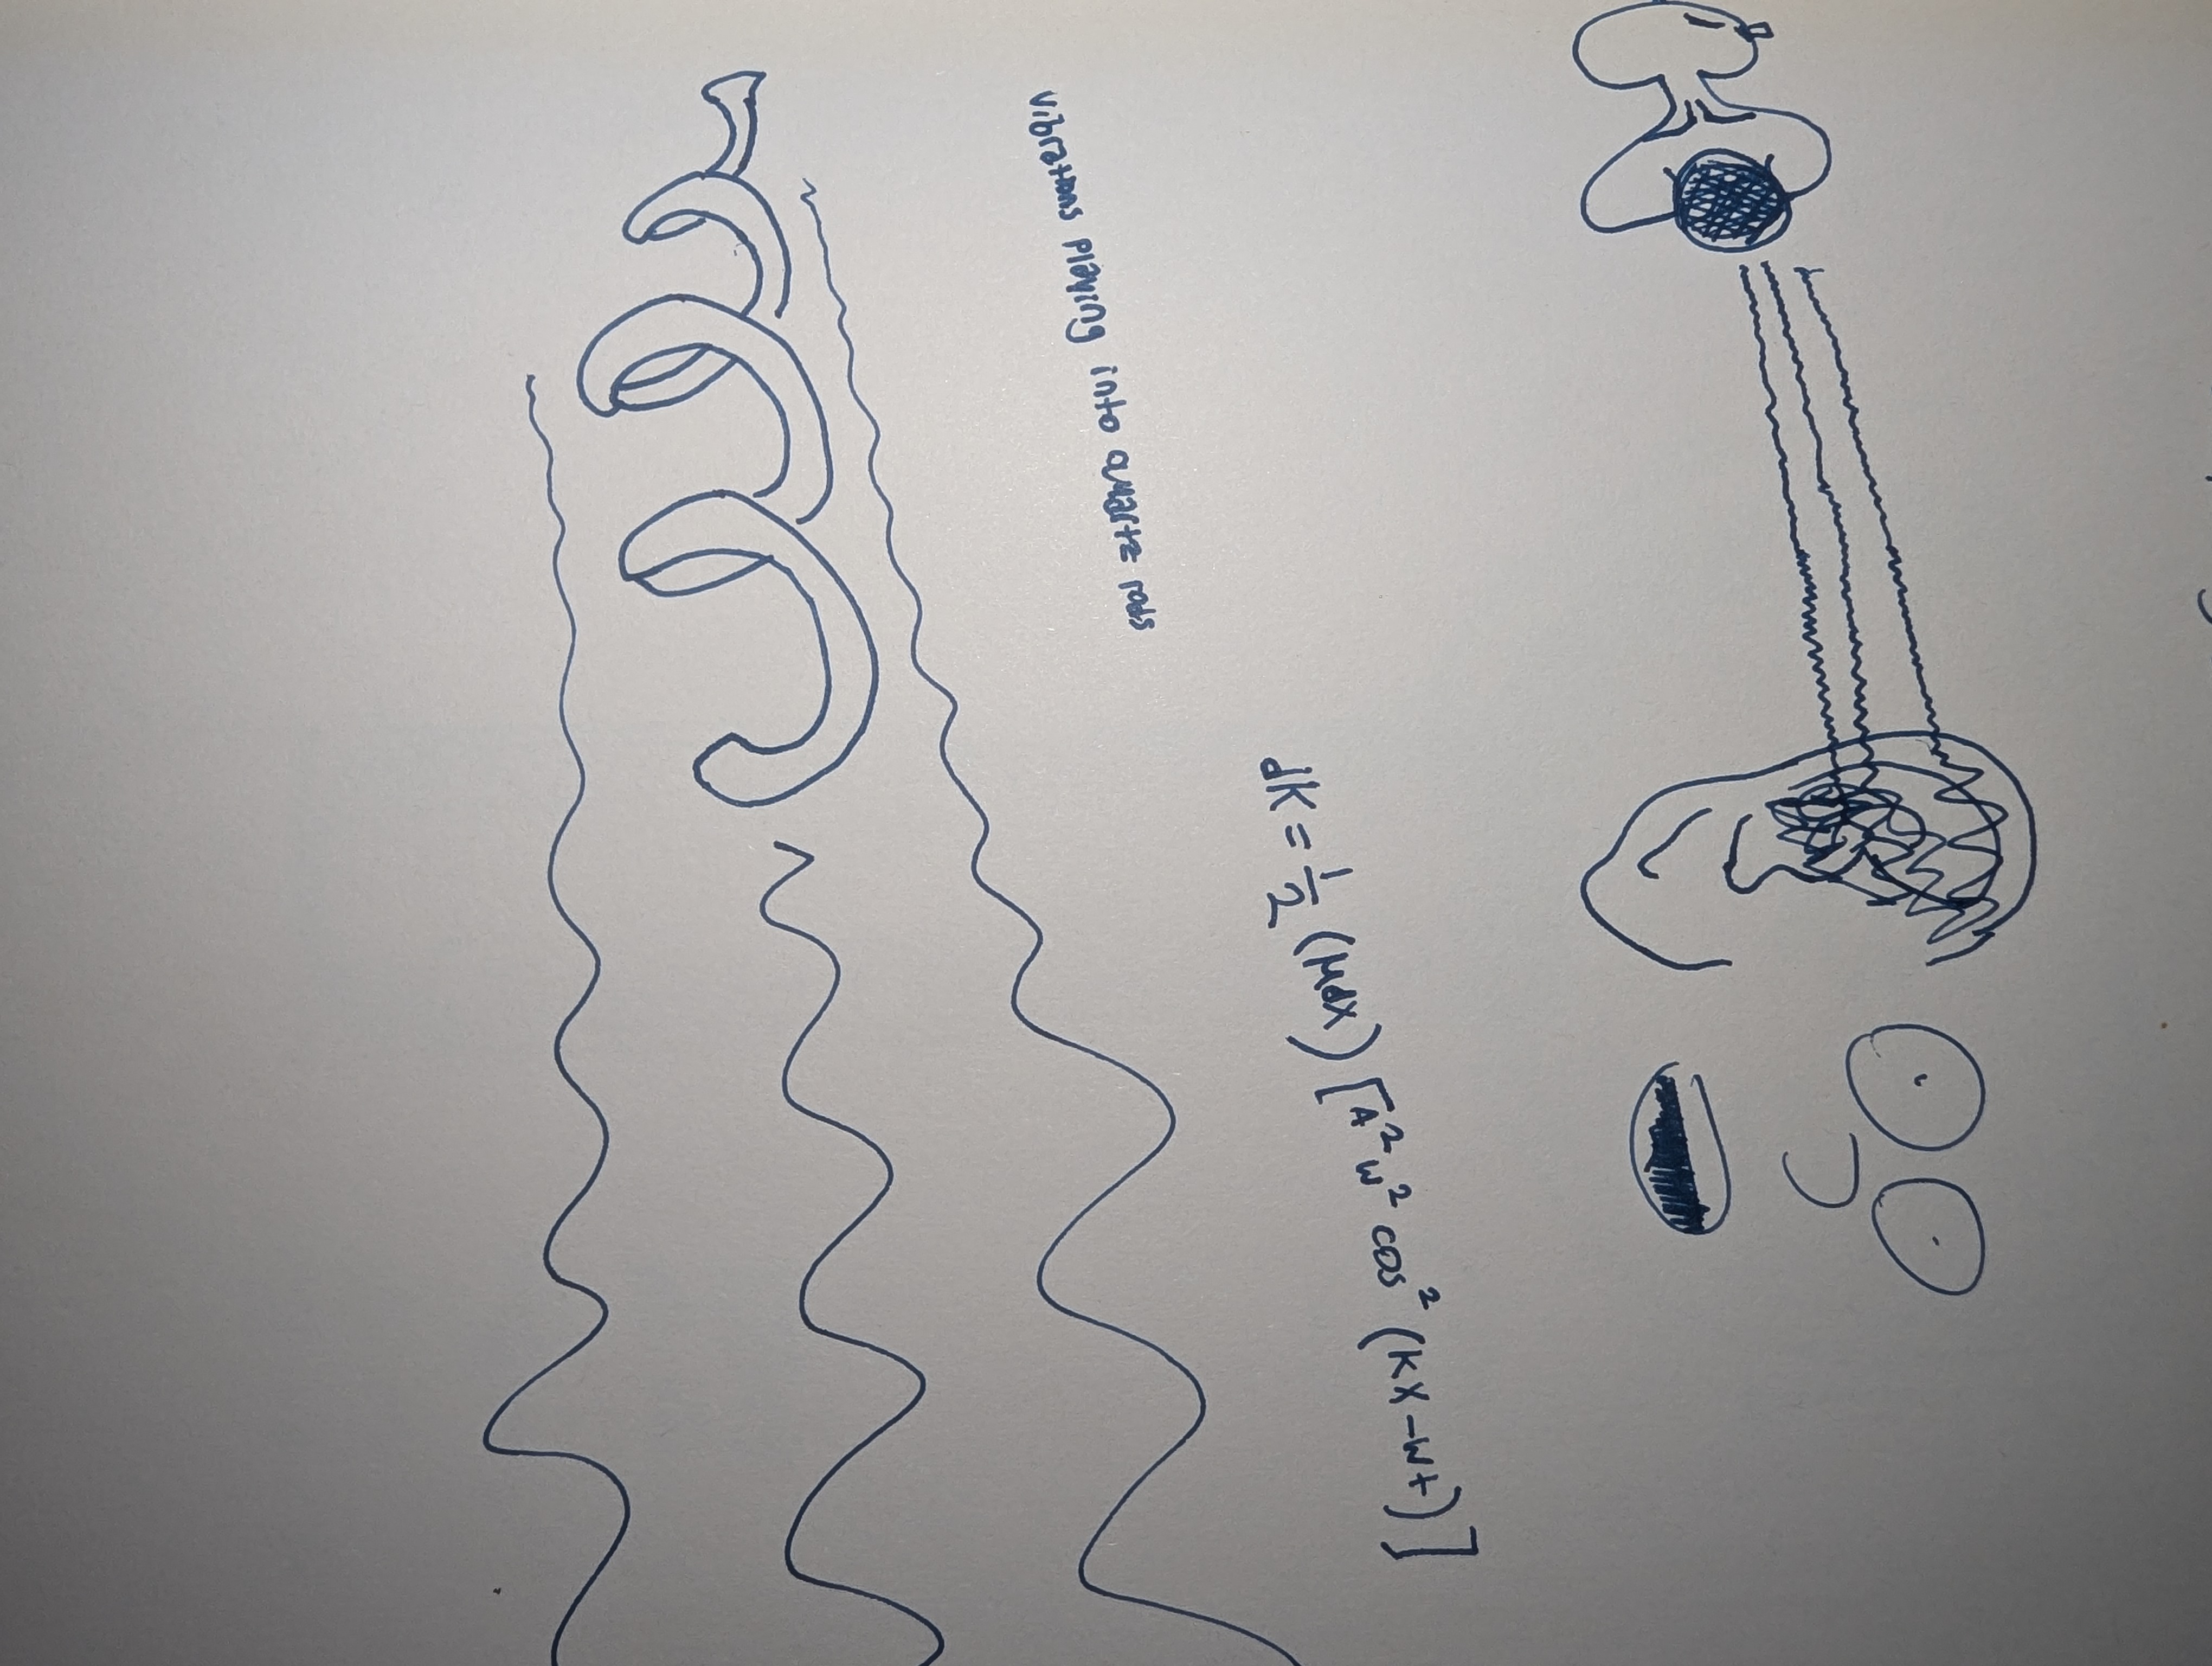 dK = 1/2 (μdx) [A² w² cos² (kx - wt)]
vibrations playing into quartz rods